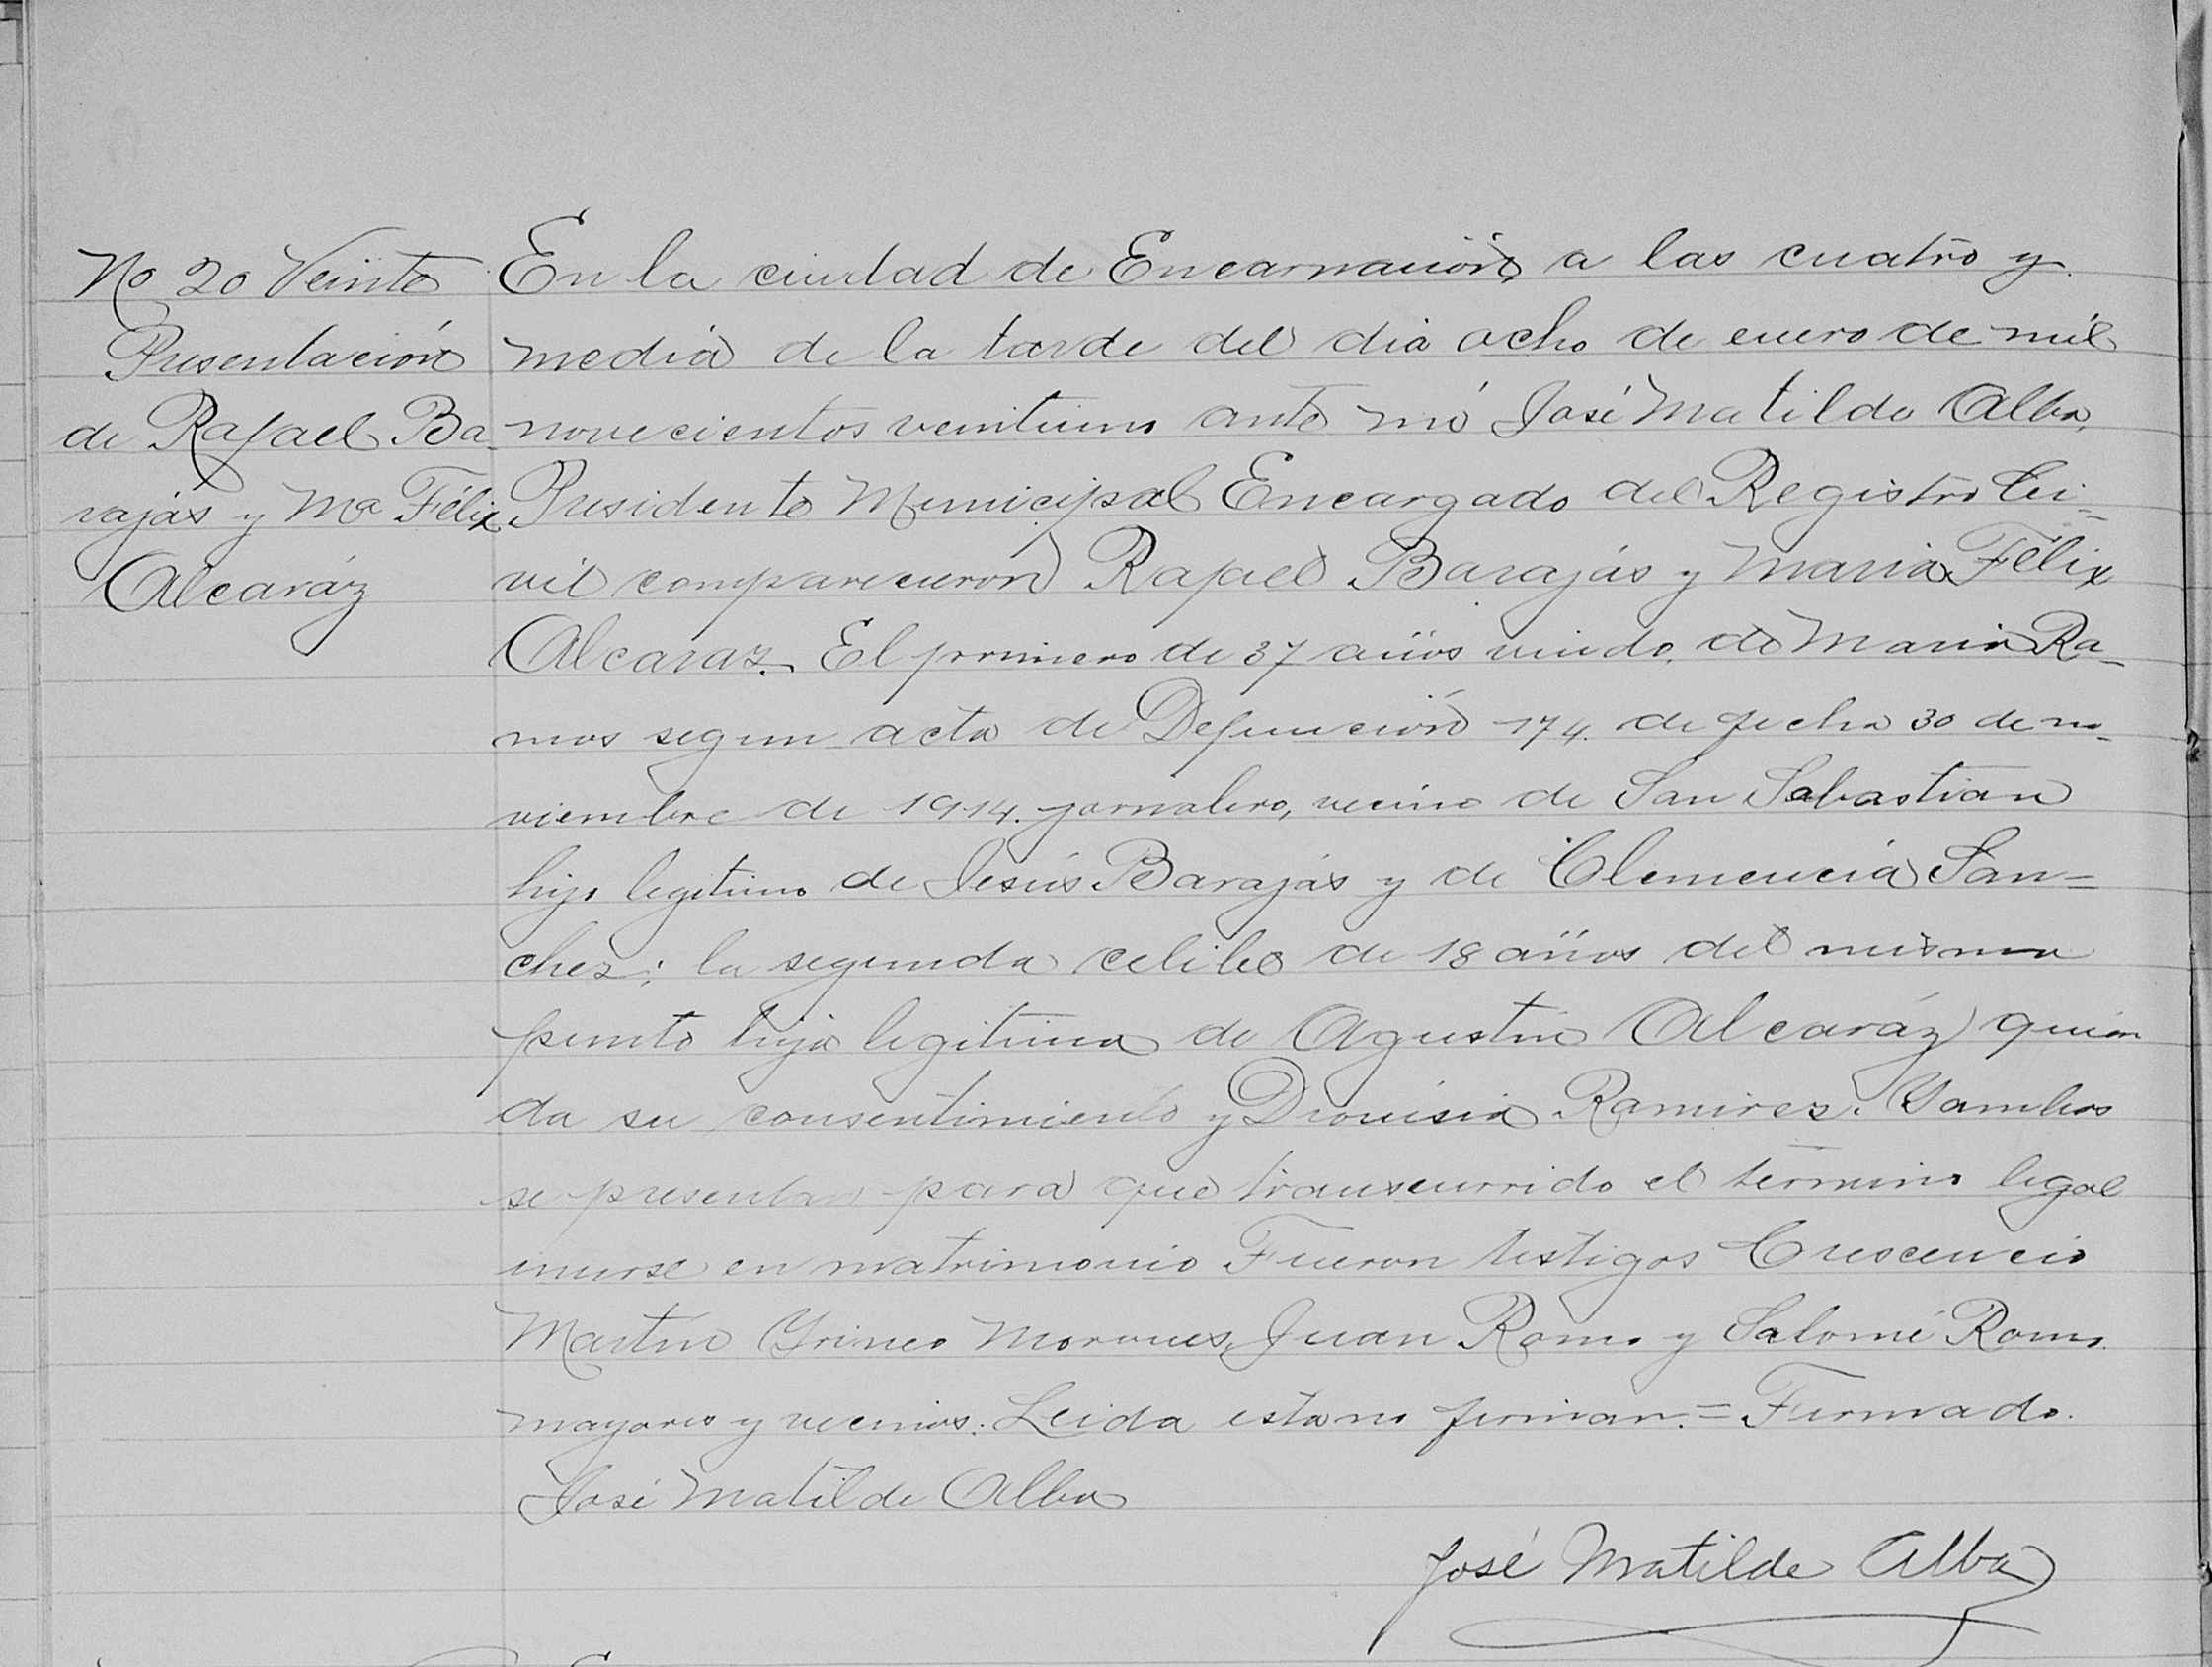 No 20 Veinte
Presentación
de Rafael Ba-
rajás y Ma Félix
Alcaráz
En la ciudad de Encarnación, a las cuatro y
media de la tarde del dia ocho de enero de mil
novecientos veintiuno ante mi José Matilde Alba,
Presidente Municipal Encargado del Registro Ci=
vil comparecieron Rafael Barajás y Maria Félix
Alcaraz. El primero de 37 años viudo de Maria Ra-
mos segun acta de Defunción 174. de fecha 30 de no-
viembre de 1914. jornalero, vecino de San Sabastian
hijo legitimo de Jesús Barajás y de Clemencia San=
chez; la segunda celibe de 18 años del mismo
punto hija legitima de Agustin Alcaráz quien
da su consentimiento y Dionisia Ramirez. Yambos
se presentan para que transcurrido el termino legal
unirse en matrimonio Fueron testigos Crescencio
Martin Yrineo Juan Romo y Salomé Romo.
mayores y vecinos. Leida esta no firman.= Firmado.
José Matilde Alba
José Matilde Alba